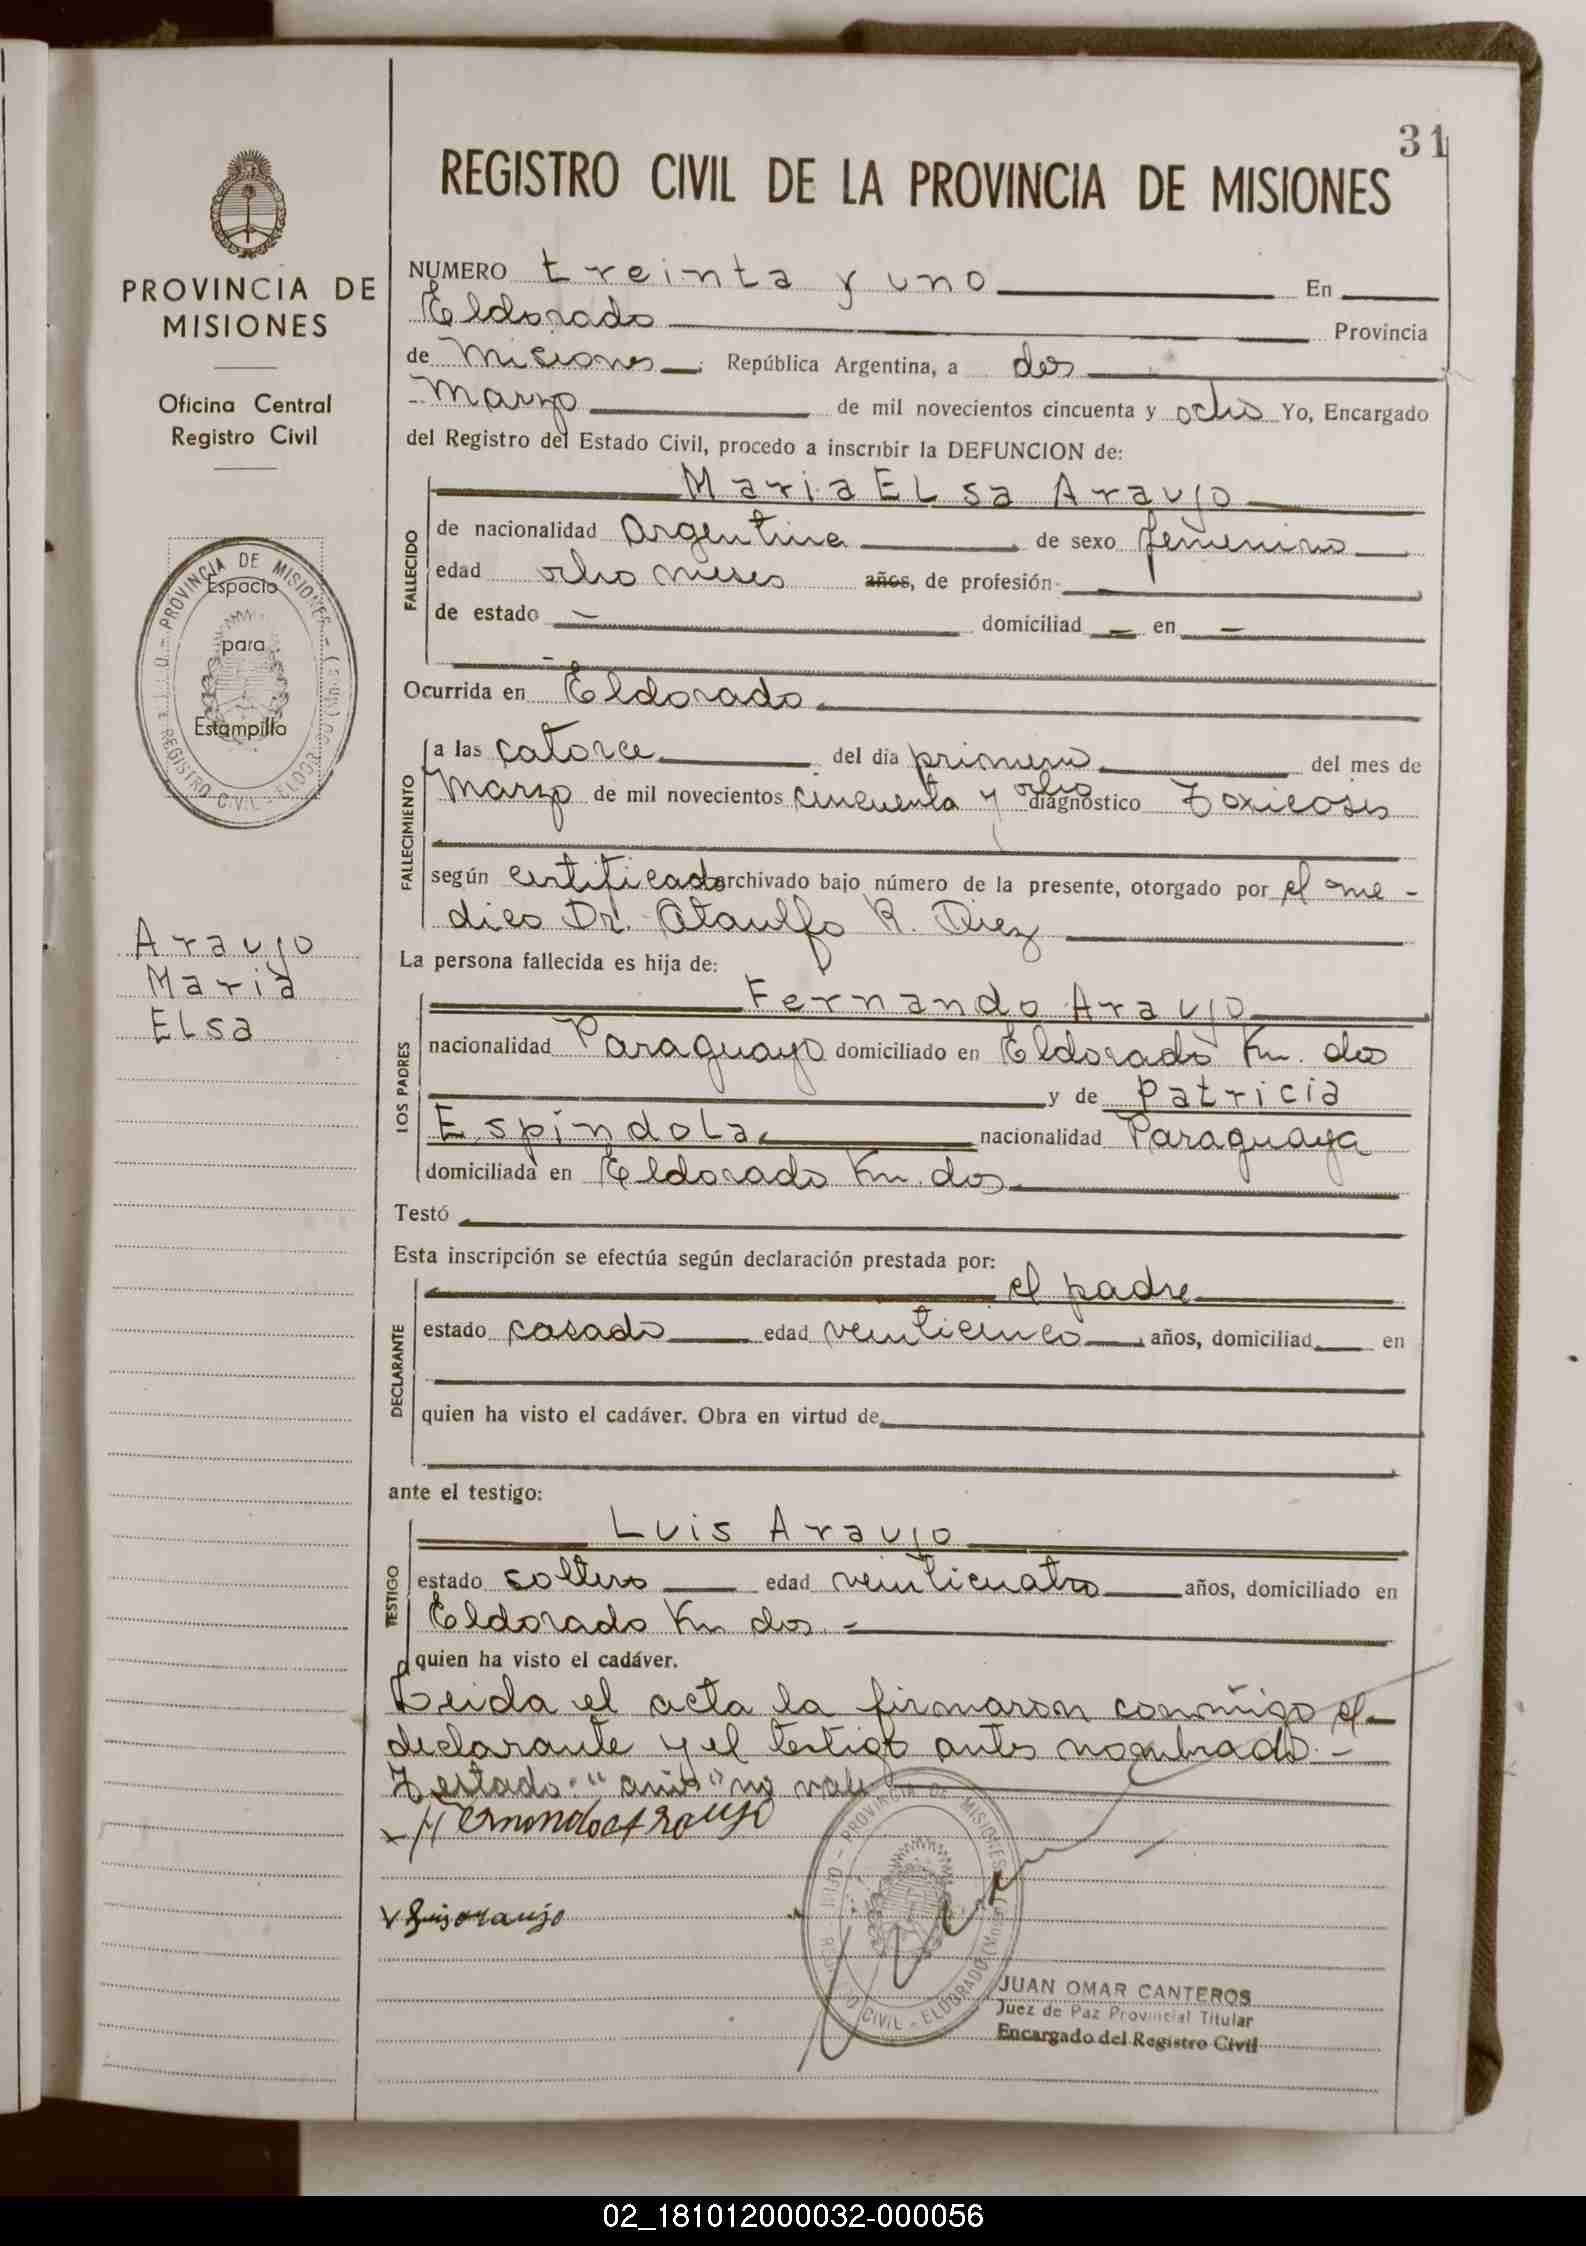 31
REGISTRO CIVIL DE LA PROVINCIA DE MISIONES
PROVINCIA DE
MISIONES
Oficina Central
Registro Civil
PROVINCIA DE MISIONES
Espacio
para
Estampilla
REGISTRO CIVIL - ELDORADO (Mnes.)
Araujo
Maria
Elsa
NUMERO treinta y uno En
Eldorado Provincia
de Misiones República Argentina, a dos
Marzo de mil novecientos cincuenta y ocho Yo, Encargado
del Registro del Estado Civil, procedo a inscribir la DEFUNCION de:
Maria ELsa Araujo
FALLECIDO
de nacionalidad Argentina de sexo femenino
edad ocho meses años, de profesión
de estado — domiciliad — en —
Ocurrida en Eldorado
FALLECIMIENTO
a las catorce del día primero del mes de
Marzo de mil novecientos cincuenta y ocho diagnóstico Toxicosis
según certificado archivado bajo número de la presente, otorgado por el me-
dico Dr. Ataulfo R. Diez
La persona fallecida es hija de:
LOS PADRES
Fernando Araujo
nacionalidad Paraguayo domiciliado en Eldorado Km. dos
y de Patricia
Espíndola nacionalidad Paraguaya
domiciliada en Eldorado Km. dos
Testó
Esta inscripción se efectúa según declaración prestada por:
DECLARANTE
el padre
estado casado edad veinticinco años, domiciliad en
quien ha visto el cadáver. Obra en virtud de
ante el testigo:
TESTIGO
Luis Araujo
estado soltero edad veinticuatro años, domiciliado en
Eldorado Km dos.-
quien ha visto el cadáver.
Leida el acta la firmaron conmigo el
declarante y el testigo antes nombrado.-
Testado: "años" no vale
Fernando Araujo
Luis araujo
PROVINCIA DE MISIONES
REGISTRO CIVIL - ELDORADO (Mnes.)
JUAN OMAR CANTEROS
Juez de Paz Provincial Titular
Encargado del Registro Civil
02_181012000032-000056